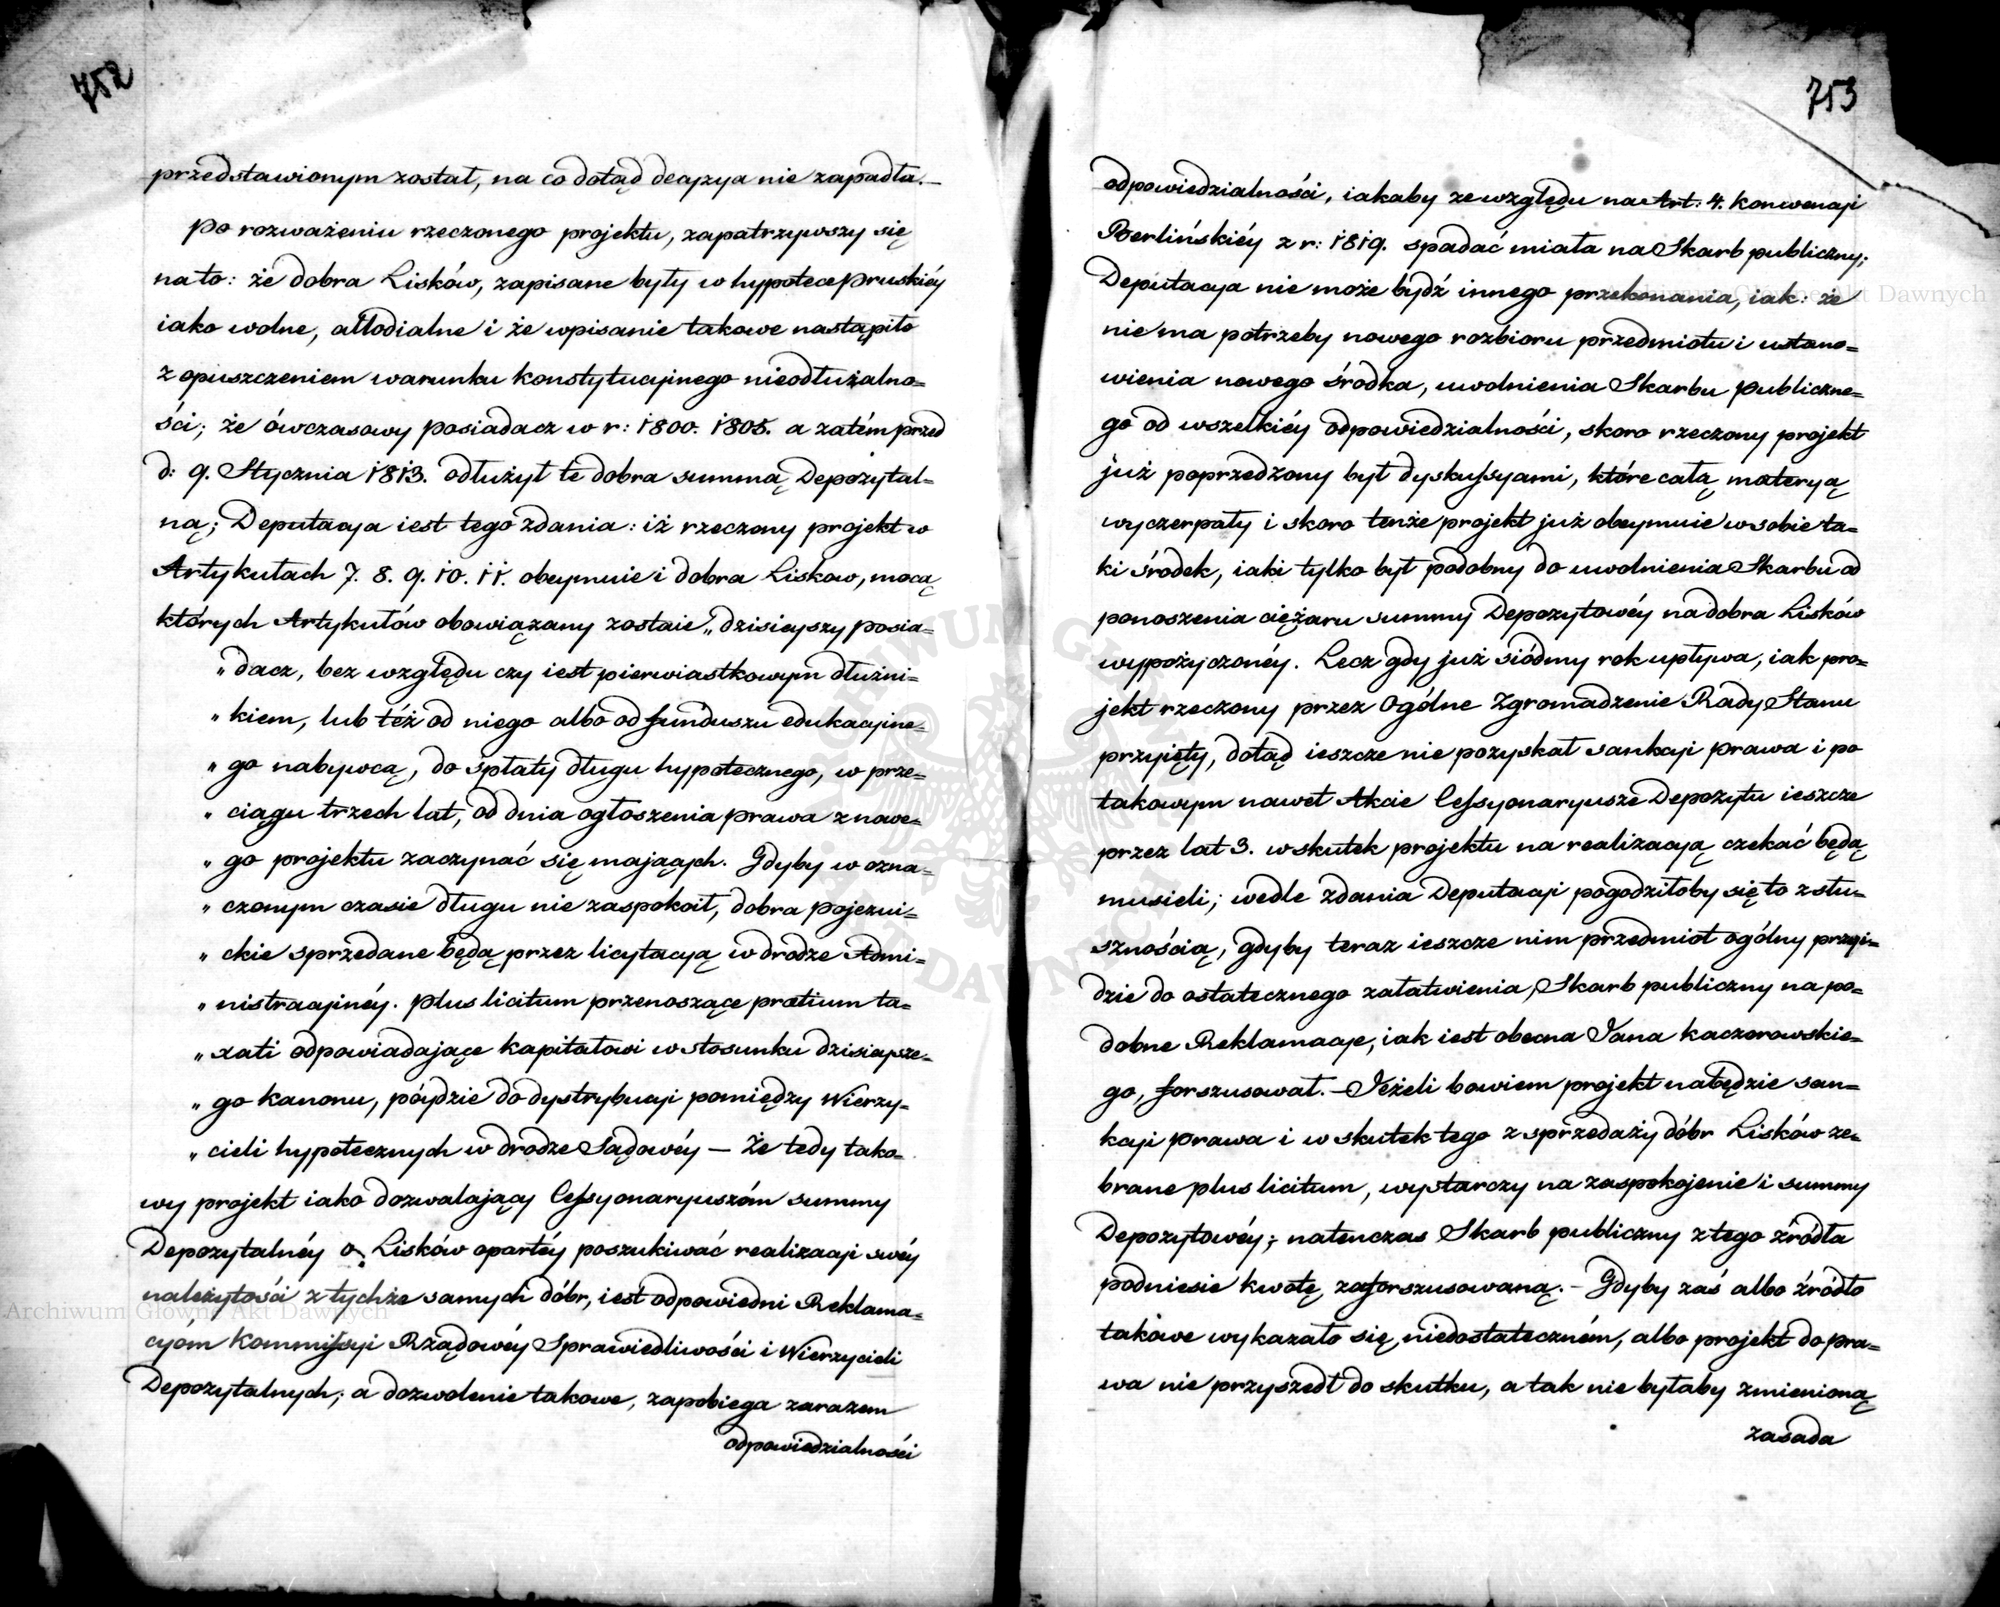 752
przedstawionym został, na co dotąd decyzya nie zapadła.—
Po rozważeniu rzeczonego projektu, zapatrzywszy się
na to: że dobra Lisków, zapisane były w hypotece Pruskiéy
iako wolne, allodialne i że wpisanie takowe nastąpiło
z opuszczeniem warunku konstytucyjnego nieodłużalno=
ści; że ówczasowy posiadacz w r: 1800. 1805. a zatém przed
d: 9. Stycznia 1813. odłużył te dobra summą Depozytal=
ną; Deputacya iest tego zdania: iż rzeczony projekt w
Artykułach 7. 8. 9. 10. 11. obeymuie i dobra Liskow, mocą
których Artykułów obowiązany zostaie „dzisieyszy posia=
„dacz, bez względu czy iest pierwiastkowym dłużni=
„kiem, lub téż od niego albo od funduszu edukacyine=
„go nabywcą, do spłaty długu hypotecznego, w prze=
„ciągu trzech lat, od dnia ogłoszenia prawa z nowe=
„go projektu zaczynać się mających. Gdyby w ozna=
„czonym czasie długu nie zaspokoił, dobra pojezui=
„ckie sprzedane będą przez licytacyą w drodze Admi=
„nistracyjnéy. Plus licitum przenoszące pretium ta=
„xati odpowiadające kapitałowi w stosunku dzisieysze=
„go kanonu, póydzie do dystrybucyi pomiędzy Wierzy=
„cieli hypotecznych w drodze Sądowéy — Że tedy tako=
wy projekt iako dozwalający Cessyonaryuszóm summy
Depozytalnéy o Lisków opartéy poszukiwać realizacyi swéy
należytości z tychże samych dóbr, iest odpowiedni Reklama=
cyóm Kommissyi Rządowéy Sprawiedliwości i Wierzycieli
Depozytalnych; a dozwolenie takowe, zapobiega zarazem
odpowiedzialności
753
odpowiedzialności, iakaby ze względu na Art: 4. Konwencyi
Berlińskiéy z r: 1819. spadać miała na Skarb publiczny;
Deputacya nie może bydź innego przekonania, iak: że
nie ma potrzeby nowego rozbioru przedmiotu i ustano=
wienia nowego środka, uwolnienia Skarbu Publiczne=
go od wszelkiéy odpowiedzialności, skoro rzeczony projekt
już poprzedzony był dyskussyami, które całą materyą
wyczerpały i skoro tenże projekt już obeymuie w sobie ta=
ki środek, iaki tylko był podobny do uwolnienia Skarbu od
ponoszenia ciężaru summy Depozytowéy na dobra Lisków
wypożyczonéy. Lecz gdy już siódmy rok upływa, iak pro=
jekt rzeczony przez Ogólne Zgromadzenie Rady Stanu
przyięty, dotąd ieszcze nie pozyskał sankcyi prawa i po
takowym nawet Akcie Cessyonaryusze Depozytu ieszcze
przez lat 3. w skutek projektu na realizacyą czekać będą
musieli; wedle zdania Deputacyi pogodziłoby się to z słu=
sznością, gdyby teraz ieszcze nim przedmiot ogólny przyi=
dzie do ostatecznego załatwienia, Skarb publiczny na po=
dobne Reklamacye, iak iest obecna Jana Kaczorowskie=
go, forszusował. — Jeżeli bowiem projekt nabędzie san=
kcyi prawa i w skutek tego z sprzedaży dóbr Lisków ze=
brane plus licitum, wystarczy na zaspokojenie i summy
Depozytowéy; natenczas Skarb publiczny z tego źródła
podniesie kwotę zaforszusowaną. — Gdyby zaś albo źródło
takowe wykazało się niedostateczném, albo projekt do pra=
wa nie przyszedł do skutku, a tak nie byłaby zmienioną
zasada
Archiwum Główne Akt Dawnych
Archiwum Główne Akt Dawnych
ARCHIWUM GŁÓWNE AKT DAWNYCH